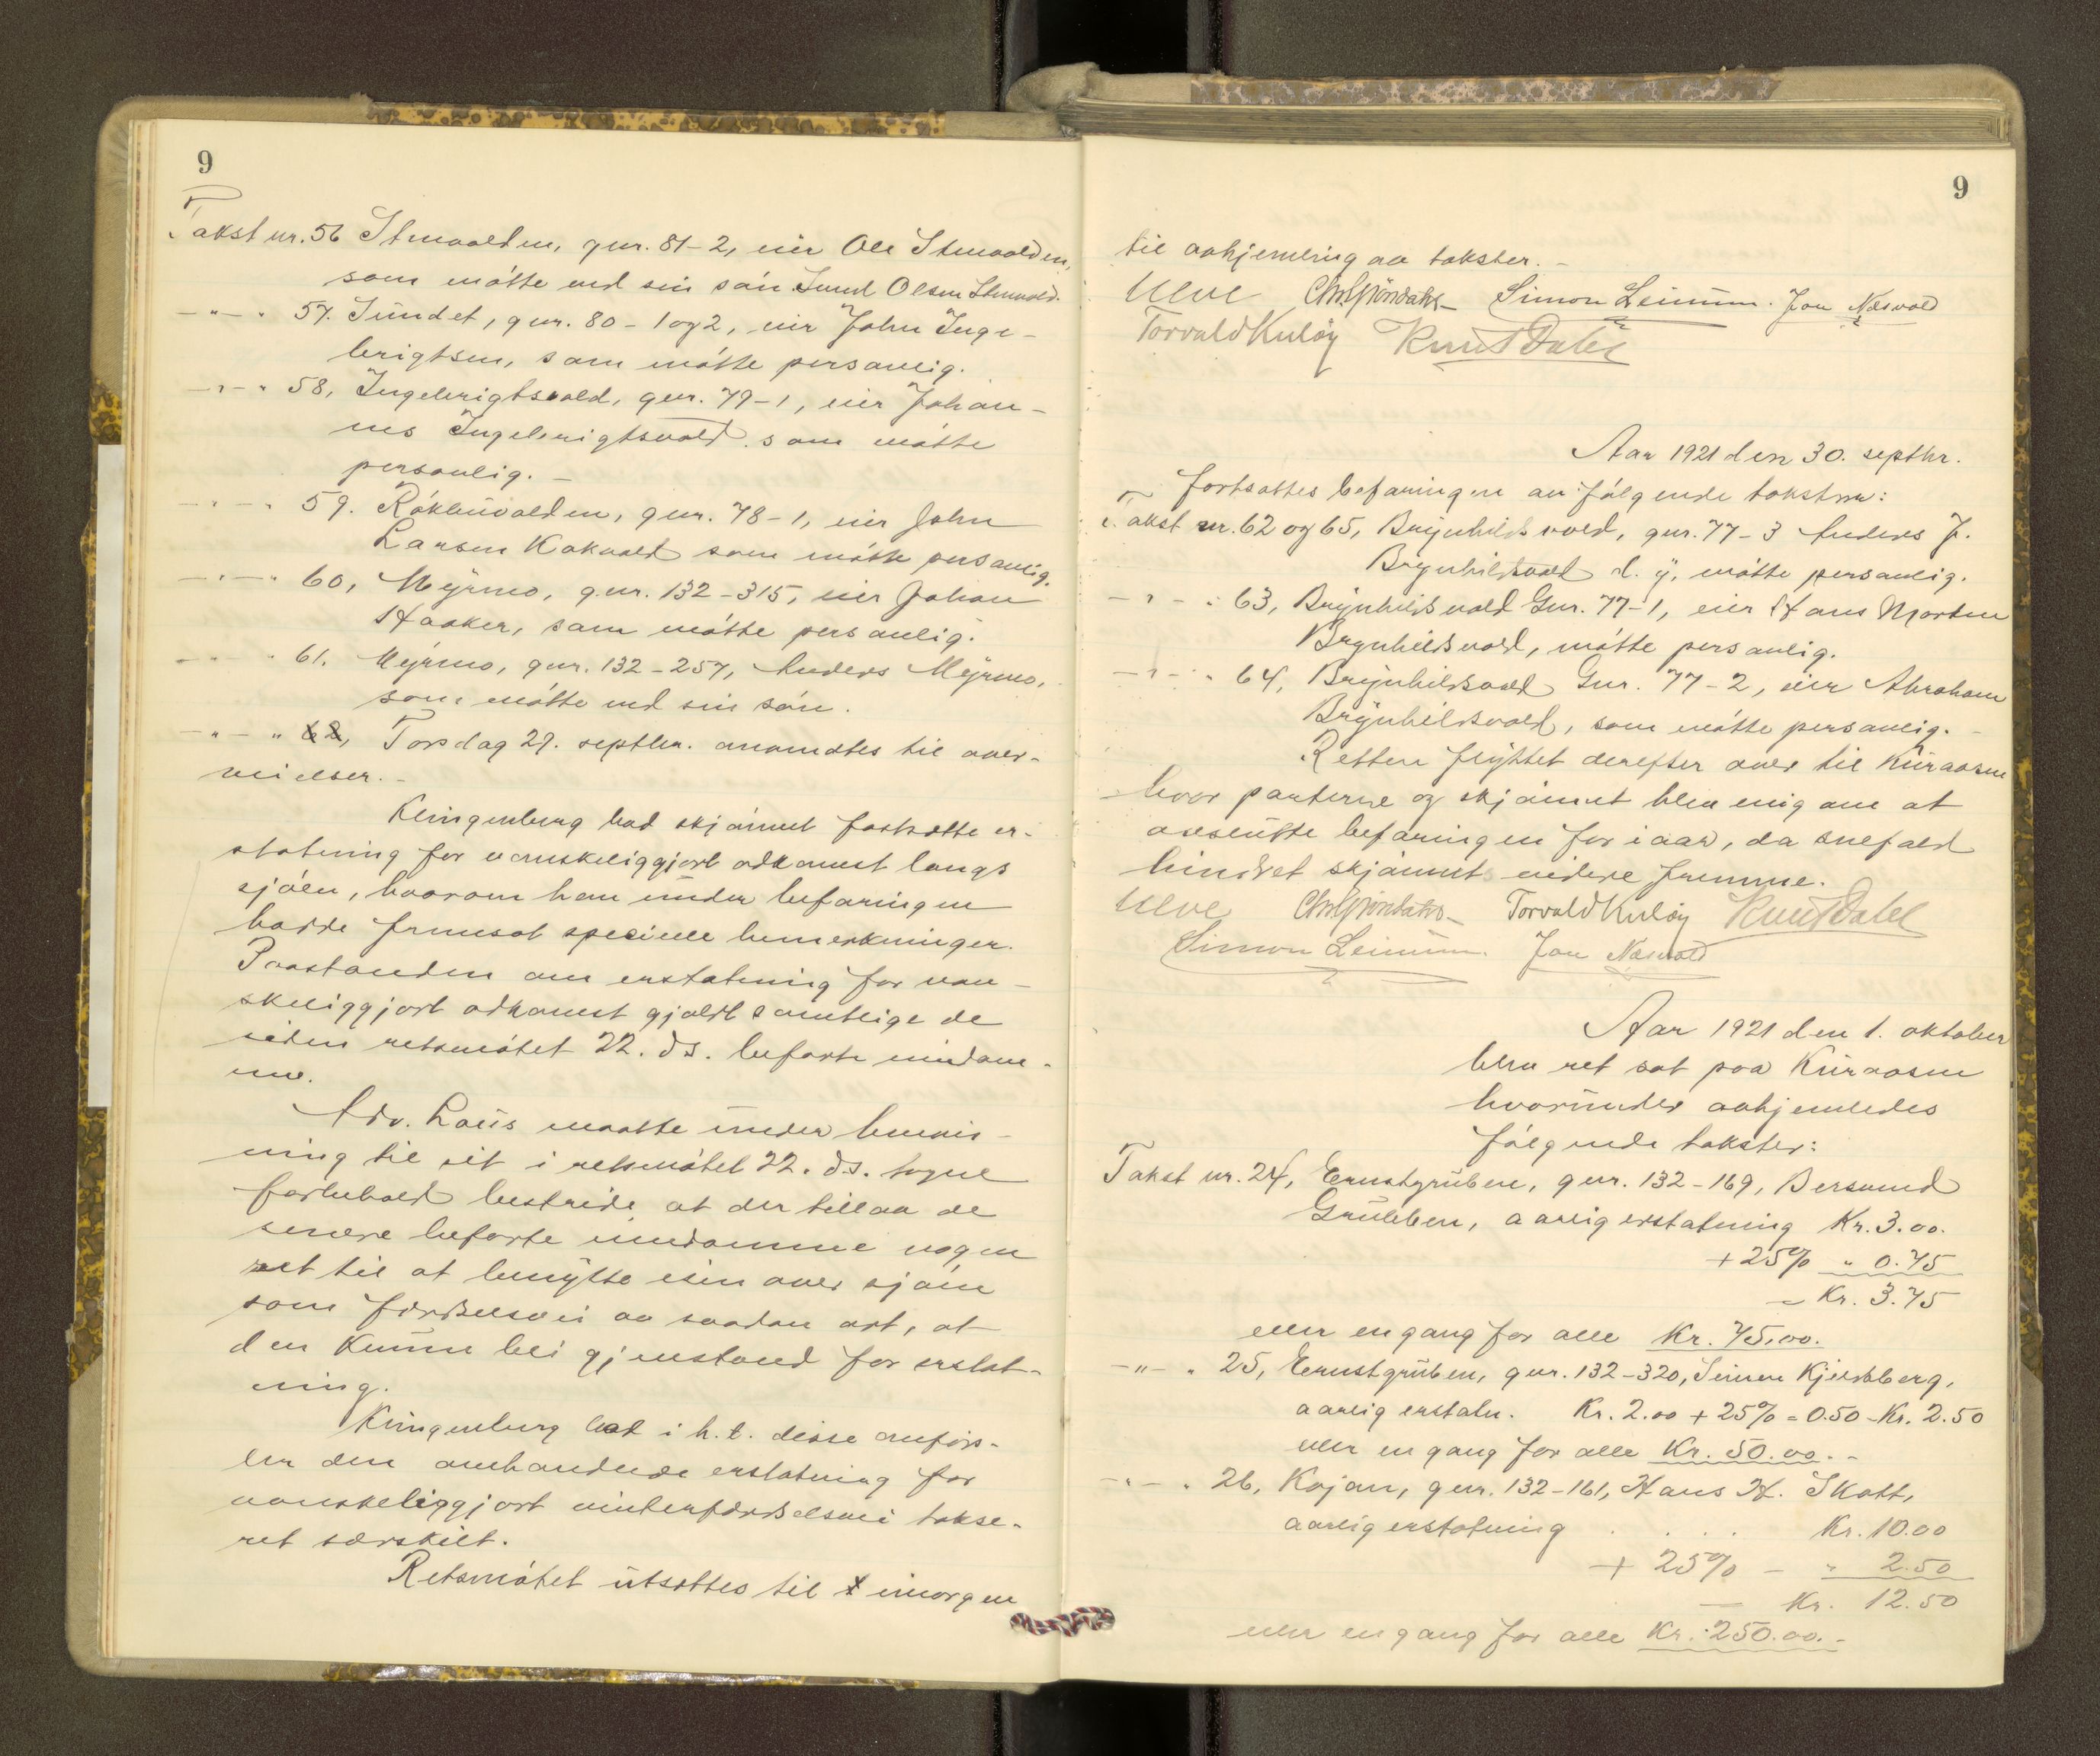 9
Takst nr. 56 Stenvolden, gnr. 81-2, eier Ole Stenvolden,
som møtte ved sin søn Olsen Stenvold.
-"- " 57. Sundet, gnr. 80-1 og 2, eier John Inge-
brigtsen, som møtte personlig.
-"- " 58, Ingebrigtsvold, gnr. 79-1, eier Johan-
nes Ingebrigtsvold som møtte
personlig. -
-"- " 59. gnr. 78-1, eier John
Larsen Kokvold som møtte personlig.
-"- " 60, Myrmo, gnr. 132-315, eier Johan
Haaker, som møtte personlig.
-"- " 61. Myrmo, gnr. 132-257, Anders Myrmo,
som møtte ved sin søn.
-"- " 62, Torsdag 29. septbr. anvendtes til over-
veielser. -
Klingenberg bad skjønnet fastsætte er-
statning for vanskeliggjort adkomst langs
sjøen, hvorom han under befaringen
hadde fremsat specielle bemerkninger.
Paastanden om erstatning for van-
skeliggjort adkomst gjaldt samtlige de
siden retsmøtet 22. ds. befarte eiendom-
me.
Adv. Laus maatte under henvis-
ning til sit i retsmøtet 22. ds. tagne
forbehold bestride, at der tillaa de
senere befarte eiendomme nogen
ret til at benytte isen over sjøen
som færdselsvei av saadan art, at
den kunne bli gjenstand for erstat-
ning.
Klingenberg bad i h. t. disse anførs-
ler den omhandlede erstatning for
vanskeliggjort vinterfærdselsvei takse-
ret særskilt.
Retsmøtet utsattes til imorgen
9
til avhjemling av takster. -
Ulve Chr. Gjöndahl Simon Leinum. Jon Næsvold
Torvald Kuløy Knut Dahl
Aar 1921 den 30. septbr.
fortsattes befaringen av følgende takstnr:
Takst nr. 62 og 65, Brynhildsvold, gnr. 77-3 Anders J.
Brynhildsvold d. y. møtte personlig.
-"- " 63, Brynhildsvold Gnr. 77-1, eier Hans Morten
Brynhildsvold, møtte personlig.
-"- " 64, Brynhildsvold Gnr. 77-2, eier Abraham
Brynhildsvold, som møtte personlig. -
Retten flyttet derefter over til Kuraasen
hvor parterne og skjønnet blev enig om at
avslutte befaringen for iaar, da snefald
hindret skjønnets videre fremme.
Ulve Chr. Gjöndahl Torvald Kuløy Knut Dahl
Simon Leinum. Jon Næsvold
Aar 1921 den 1. oktober
blev ret sat paa Kuraasen
hvorunder avhjemledes
følgende takster:
Takst nr. 24, Ernstgruben, gnr. 132-169, Bersvend
Grubben, aarlig erstatning Kr. 3.00.
+ 25% " 0.75
= Kr. 3.75
eller engang for alle Kr. 75.00.
-"- " 25, Ernstgruben, gnr. 132-320, Simen Kjelsberg,
aarlig erstatn. Kr. 2.00 + 25% = 0.50 - Kr. 2.50
eller engang for alle Kr. 50.00. -
-"- " 26, Kojan, gnr. 132-161, Hans H. Skott,
aarlig erstatning . . . . Kr. 10.00
+ 25% - " 2.50
— Kr. 12.50
eller engang for alle Kr. 250.00. -